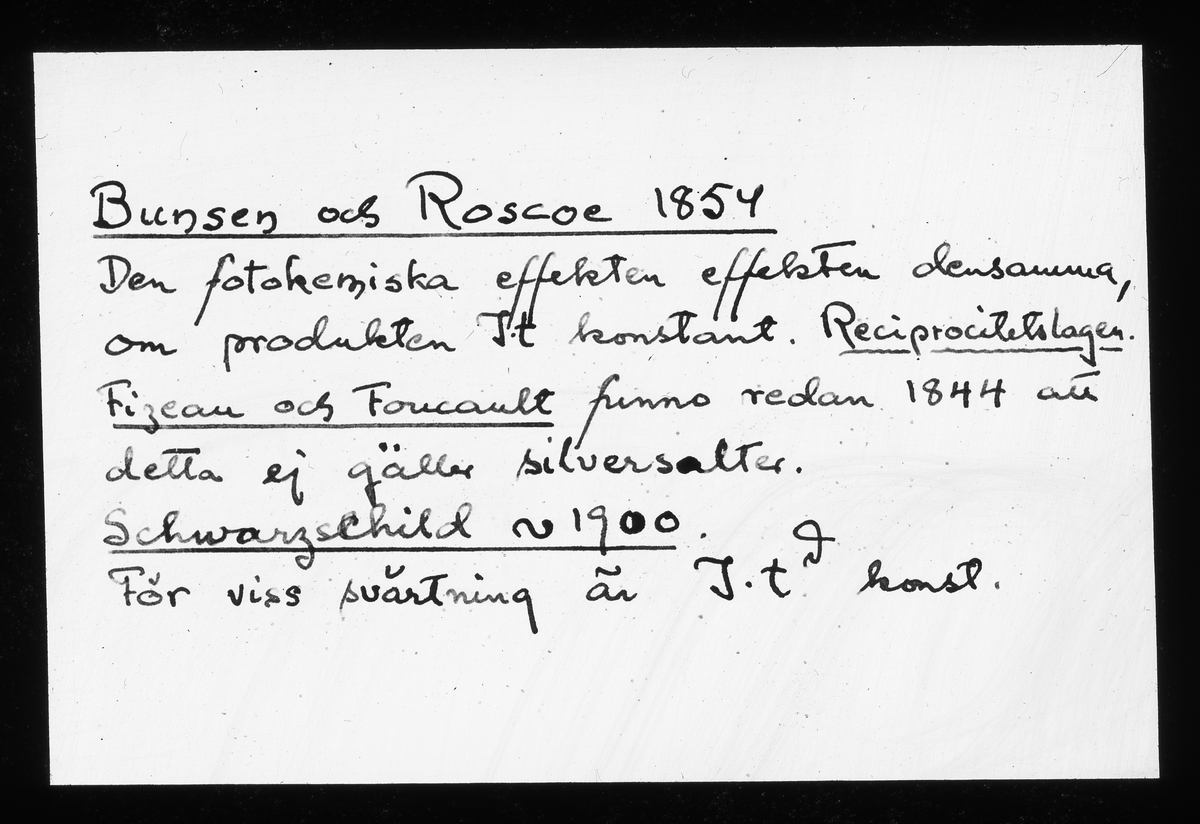 Bunsen och Roscoe 1854
Den fotokemiska effekten effekten densamma,
om produkten I·t konstant. Reciprocitetslagen.
Fizeau och Foucault funno redan 1844 att
detta ej gäller silversalter.
Schwarzschild ~ 1900.
För viss svärtning är I·t^p konst.